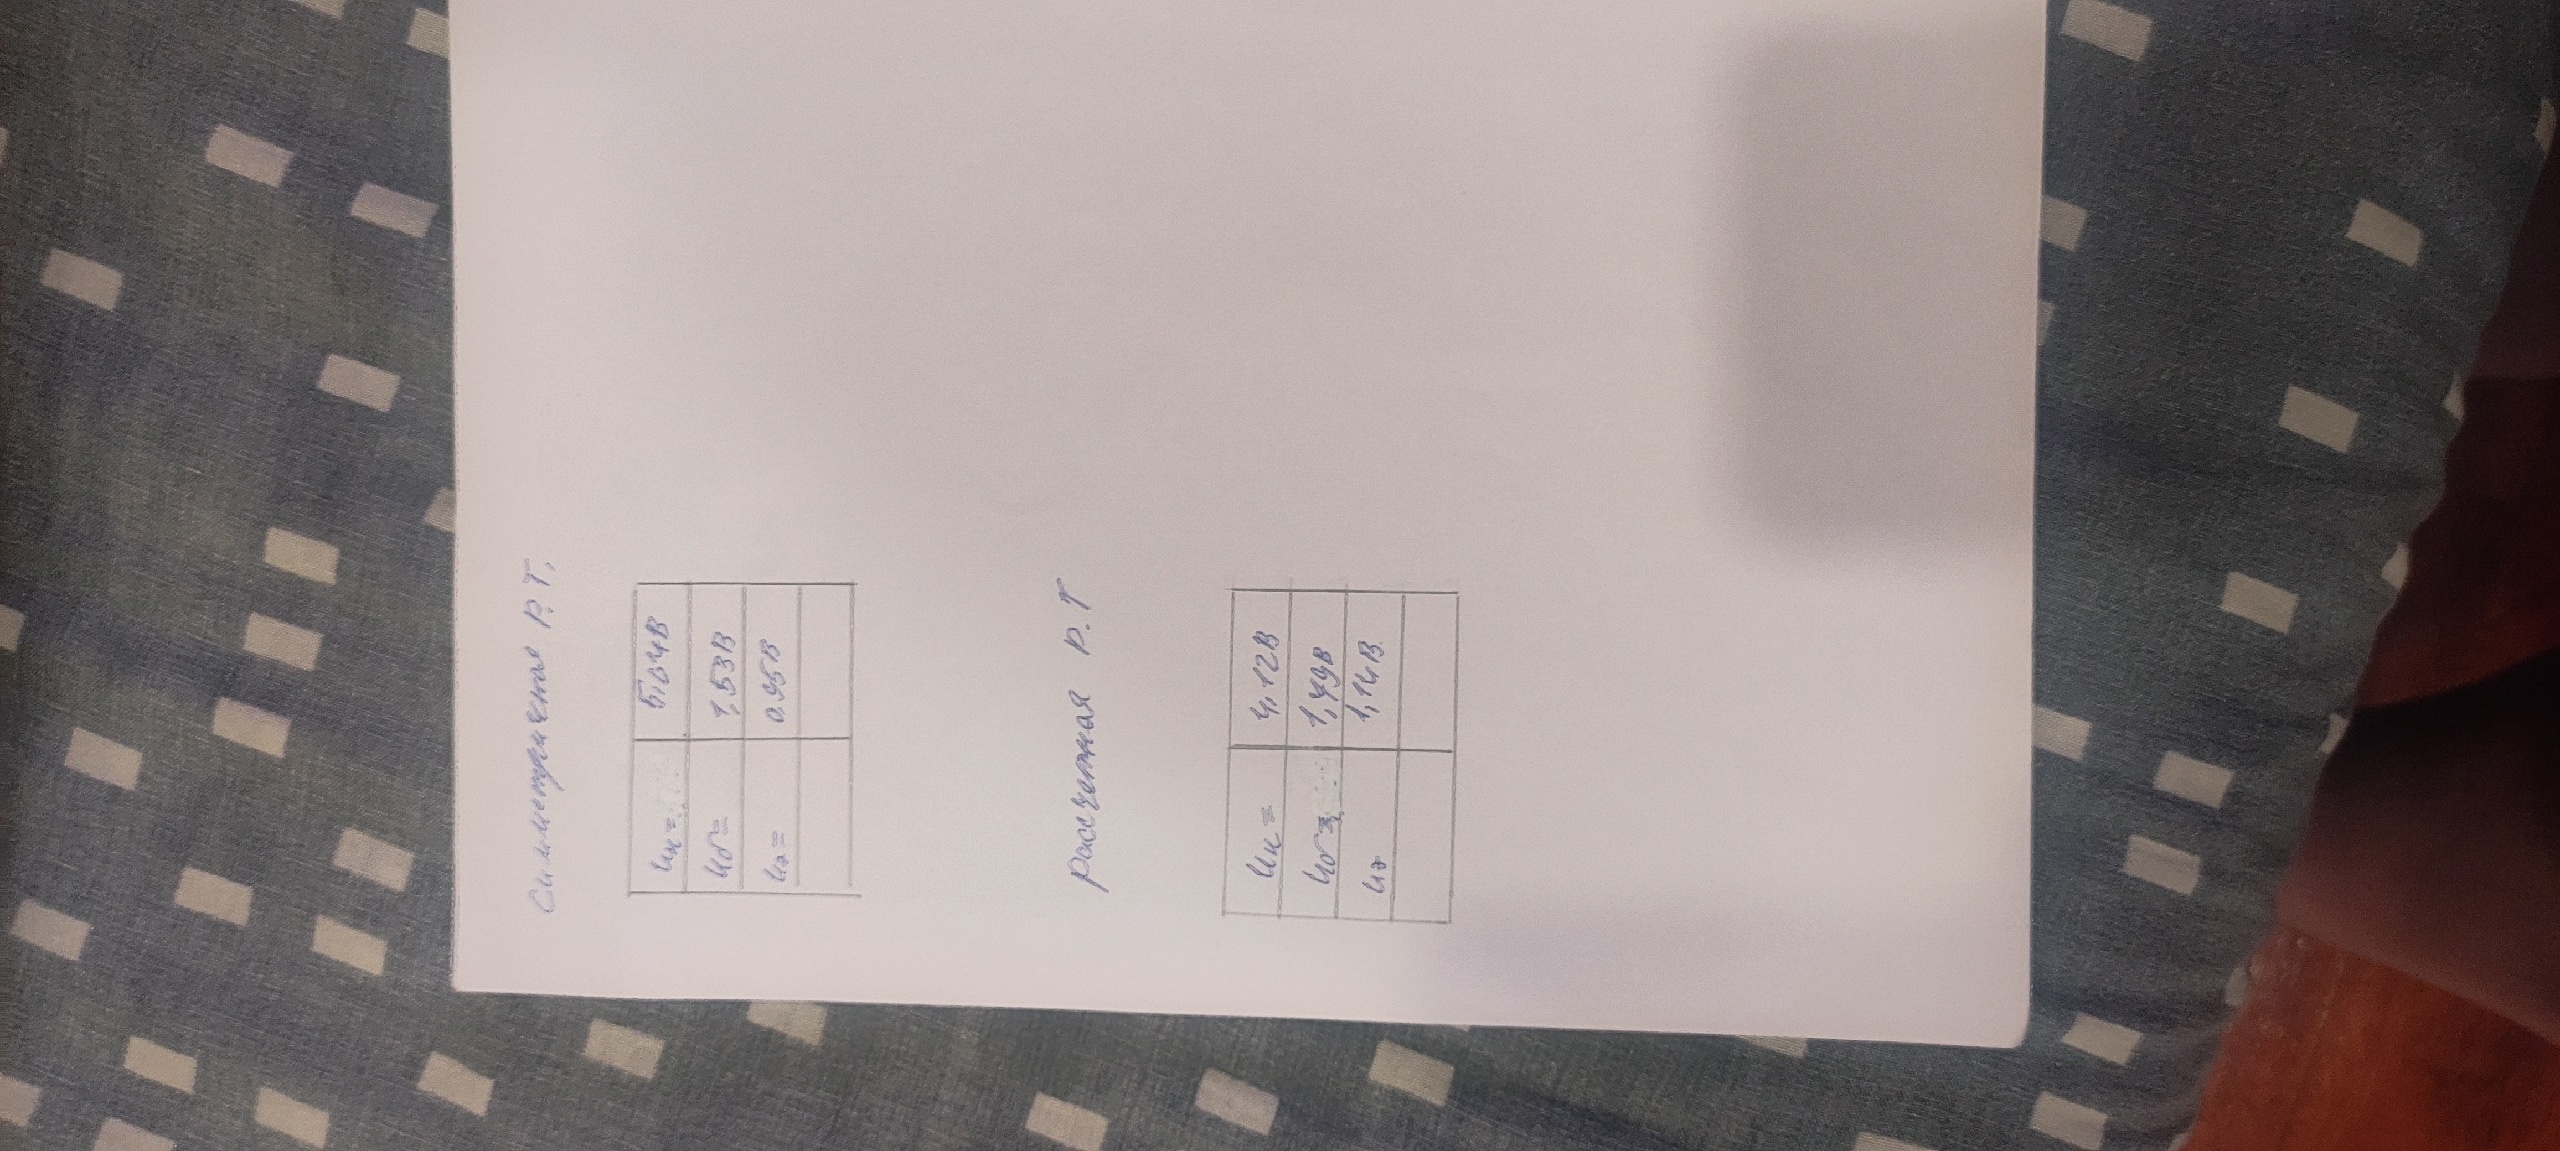 Симметричная Р.Т.
Uк= 5,64В
Uб= 1,53В
Uэ= 0.95В
Рассчетная Р.Т
Uк= 4,12В
Uб= 1,49В
Uэ 1,14В